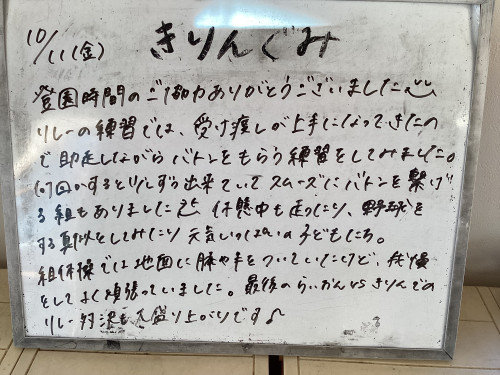 10/11(金) きりんぐみ
登園時間のご協力ありがとうございました
リレーの練習では、受け渡しが上手になってきたの
で助走しながらバトンをもらう練習をしてみました。
何回かすると少しずつ出来ていてスムーズにバトンを繋げ
る組もありました 休憩中も走ったり、野球を
する真似をしてみたり元気いっぱいの子どもたち。
組体操では地面に膝や手をついていたけど、我慢
をしてよく頑張っていました。最後のらいおんvsきりんでの
リレー対決も大盛り上がりです♪